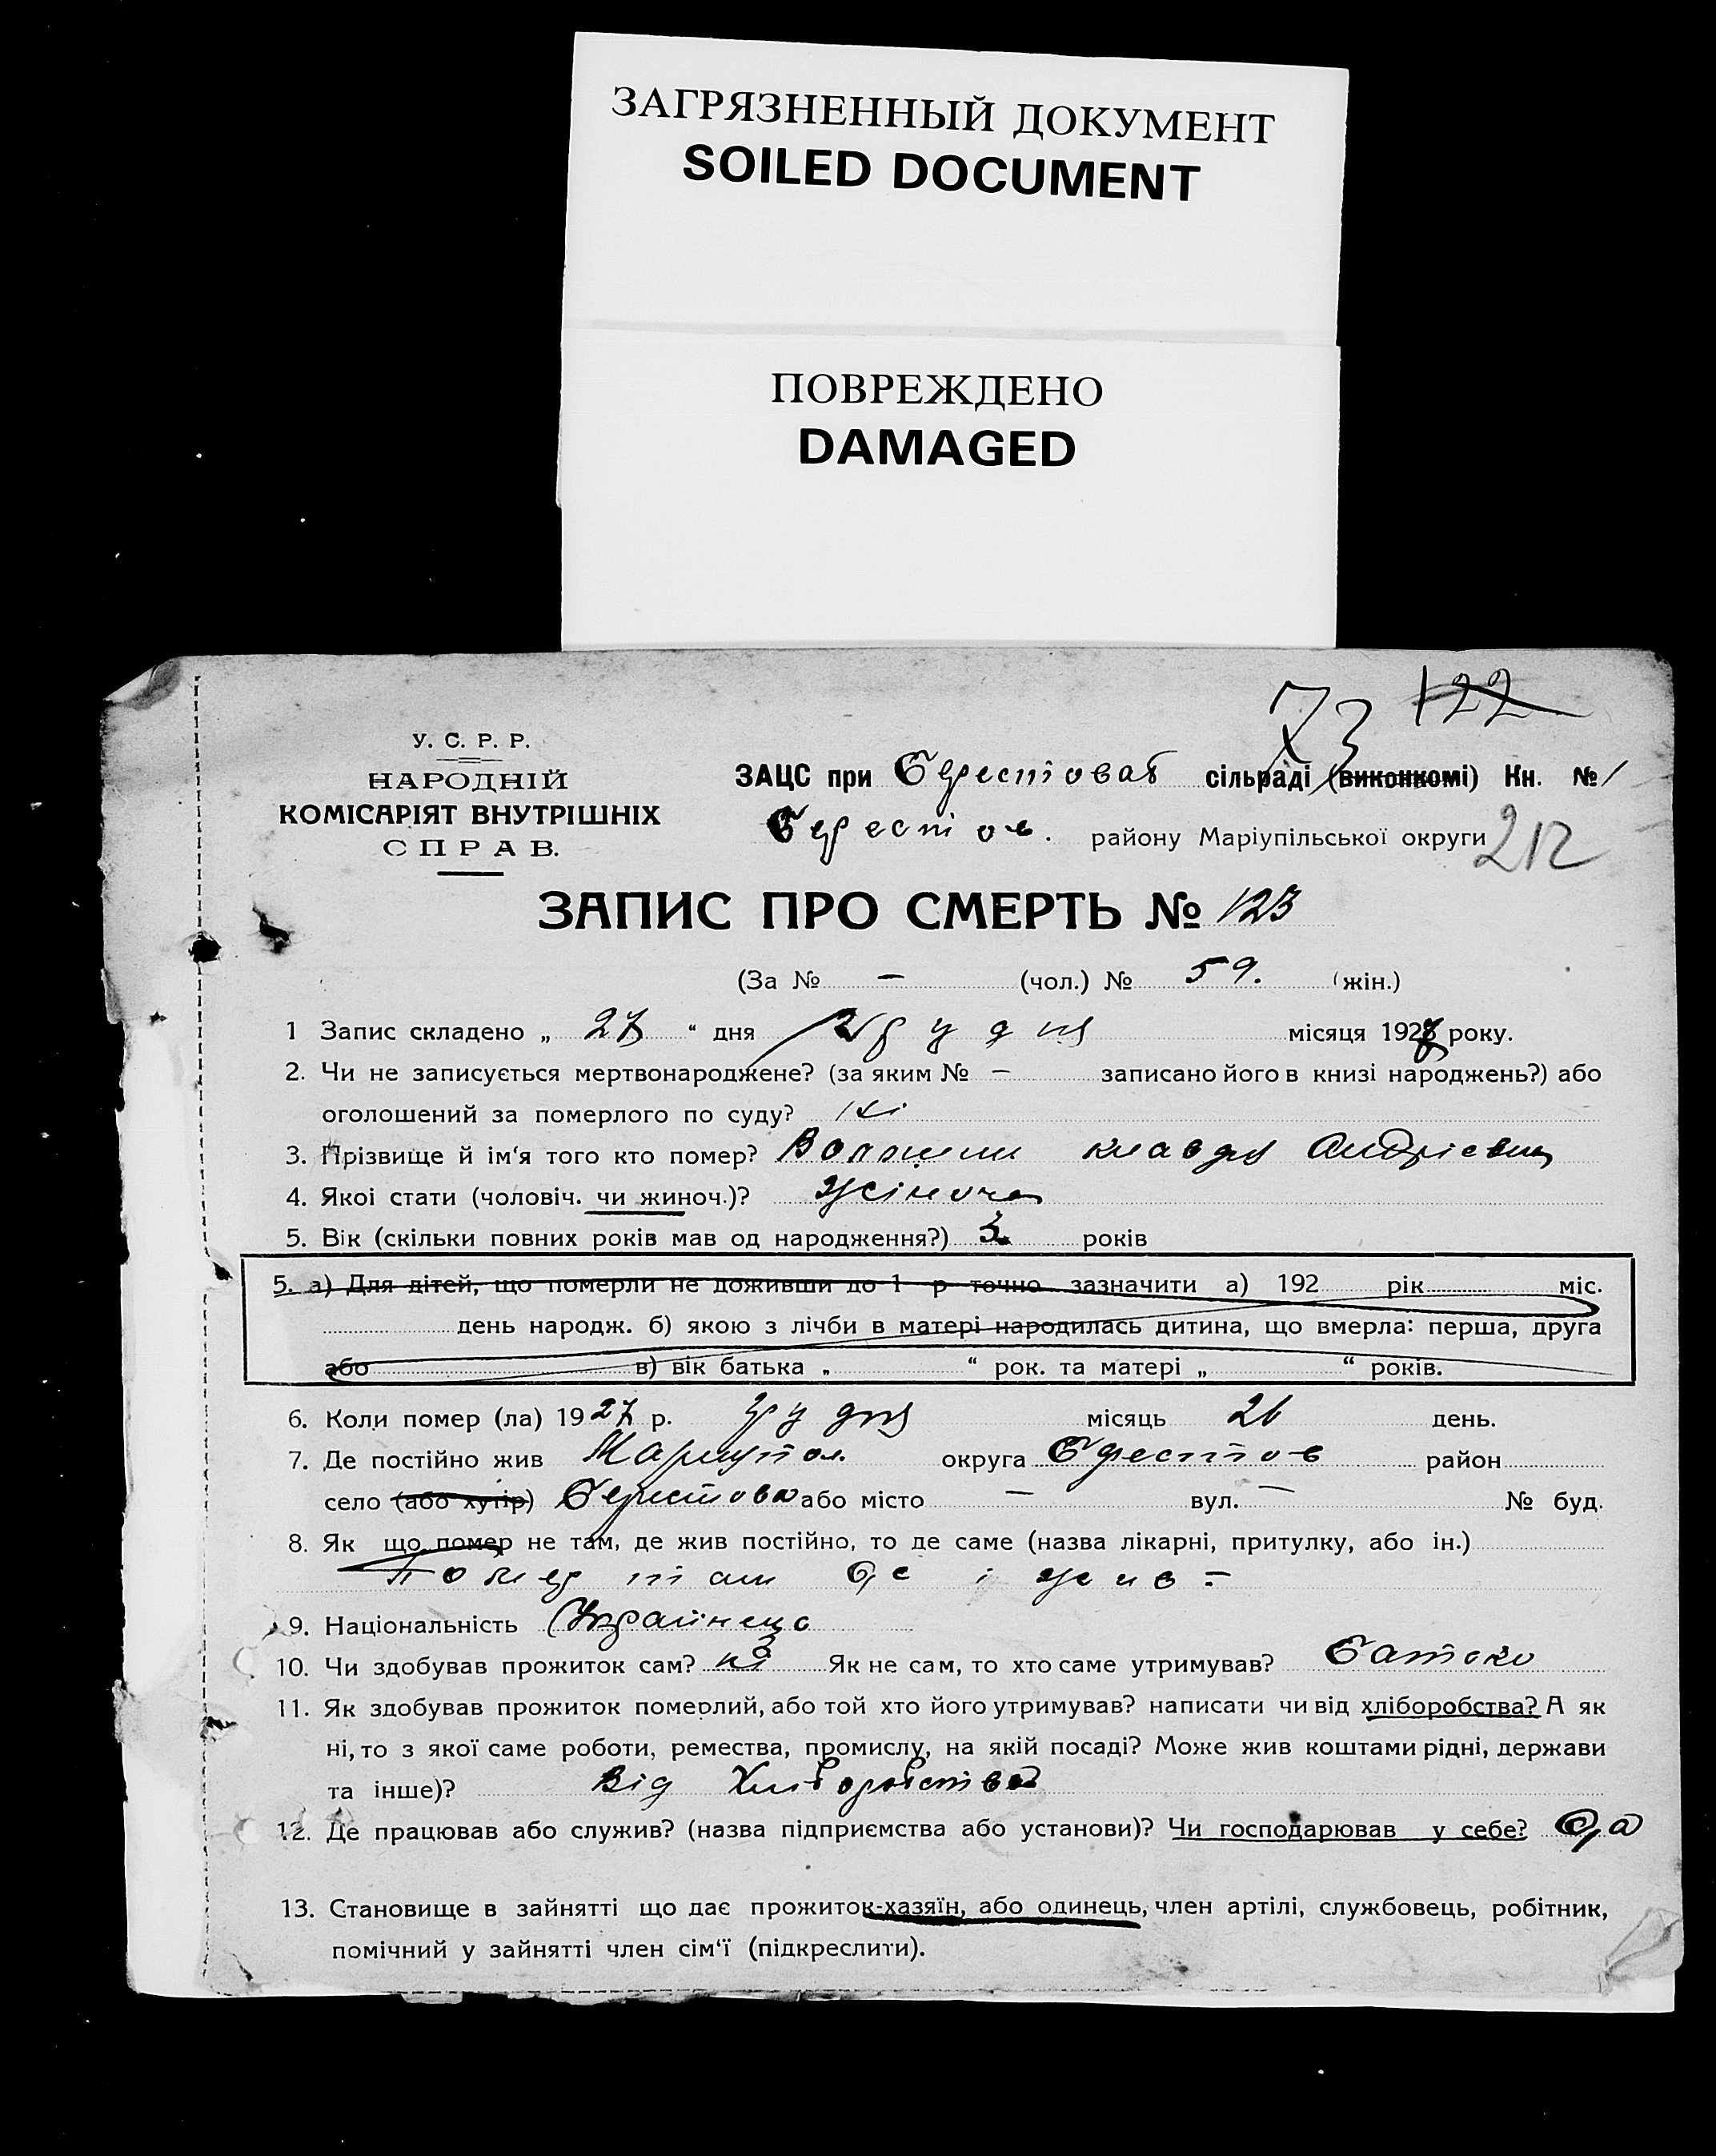 ЗАГРЯЗНЕННЫЙ ДОКУМЕНТ
SOILED DOCUMENT
ПОВРЕЖДЕНО
DAMAGED
73 122
У. С. Р. Р.
НАРОДНІЙ
КОМІСАРІЯТ ВНУТРІШНІХ
СПРАВ.
ЗАЦС при сільраді (виконкомі) Кн. № 1
Берестов. району Маріупільської округи 212
ЗАПИС ПРО СМЕРТЬ № 123
(За № – (чол.) № 59. (жін.)
1 Запис складено „ 27 “ дня Грудня місяця 1927 року.
2. Чи не записується мертвонароджене? (за яким № – записано його в книзі народжень?) або
оголошений за померлого по суду? Ні
3. Прізвище й ім‘я того кто помер? Волошин Клавдія Андрієвна
4. Якої стати (чоловіч. чи жиноч.)? жіноча
5. Вік (скільки повних років мав од народження?) 3 років
5. а) Для дітей, що померли не доживши до 1 р точно зазначити а) 192 рік міс.
день народж. б) якою з лічби в матері народилась дитина, що вмерла: перша, друга
або в) вік батька „ “ рок. та матері „ “ років.
6. Коли помер (ла) 1927 р. грудня місяць 26 день.
7. Де постійно жив Мариупол. округа Берестов район
село (або хутір) Берестова або місто – вул. – № буд.
8. Як що помер не там, де жив постійно, то де саме (назва лікарні, притулку, або ін.)
Помер там де і жив –
9. Національність Українець
10. Чи здобував прожиток сам? ні Як не сам, то хто саме утримував? Батько
11. Як здобував прожиток померлий, або той хто його утримував? написати чи від хліборобства? А як
ні, то з якої саме роботи, ремества, промислу, на якій посаді? Може жив коштами рідні, держави
та інше)? Від Хліборобства
12. Де працював або служив? (назва підприємства або установи)? Чи господарював у себе? Да
13. Становище в зайнятті що дає прожиток-хазяїн, або одинець, член артілі, службовець, робітник,
помічний у зайнятті член сім‘ї (підкреслити).